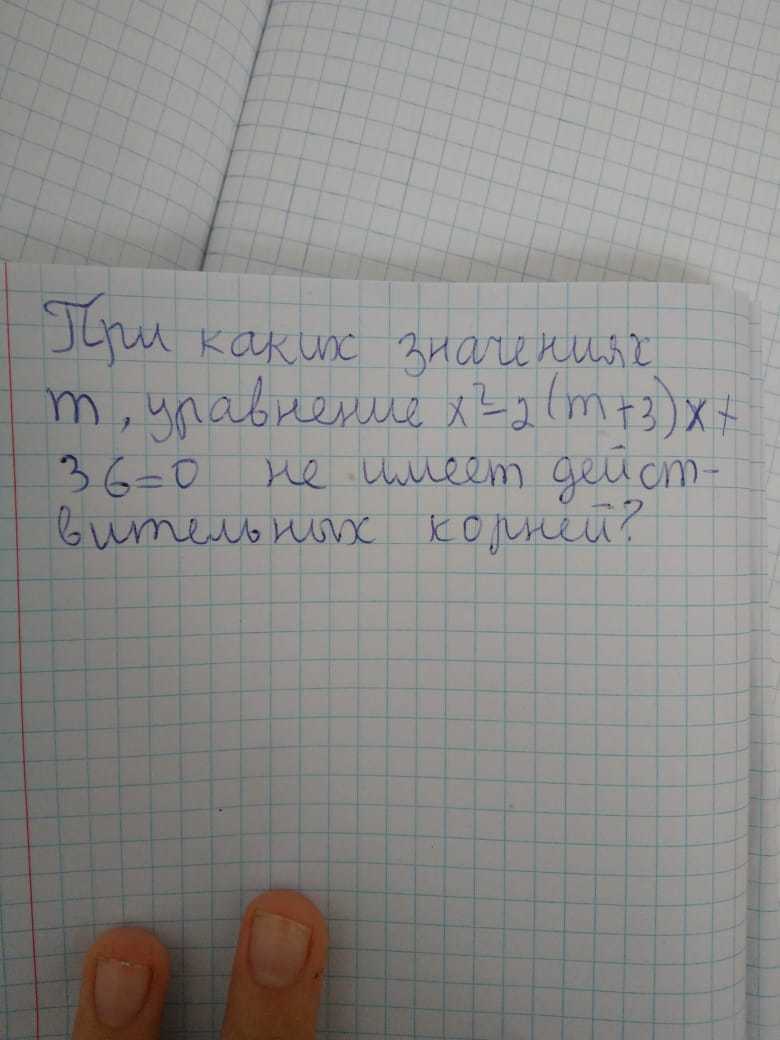 При каких значениях
m, уравнение x²-2(m+3)x+
36=0 не имеет дейст-
вительных корней?